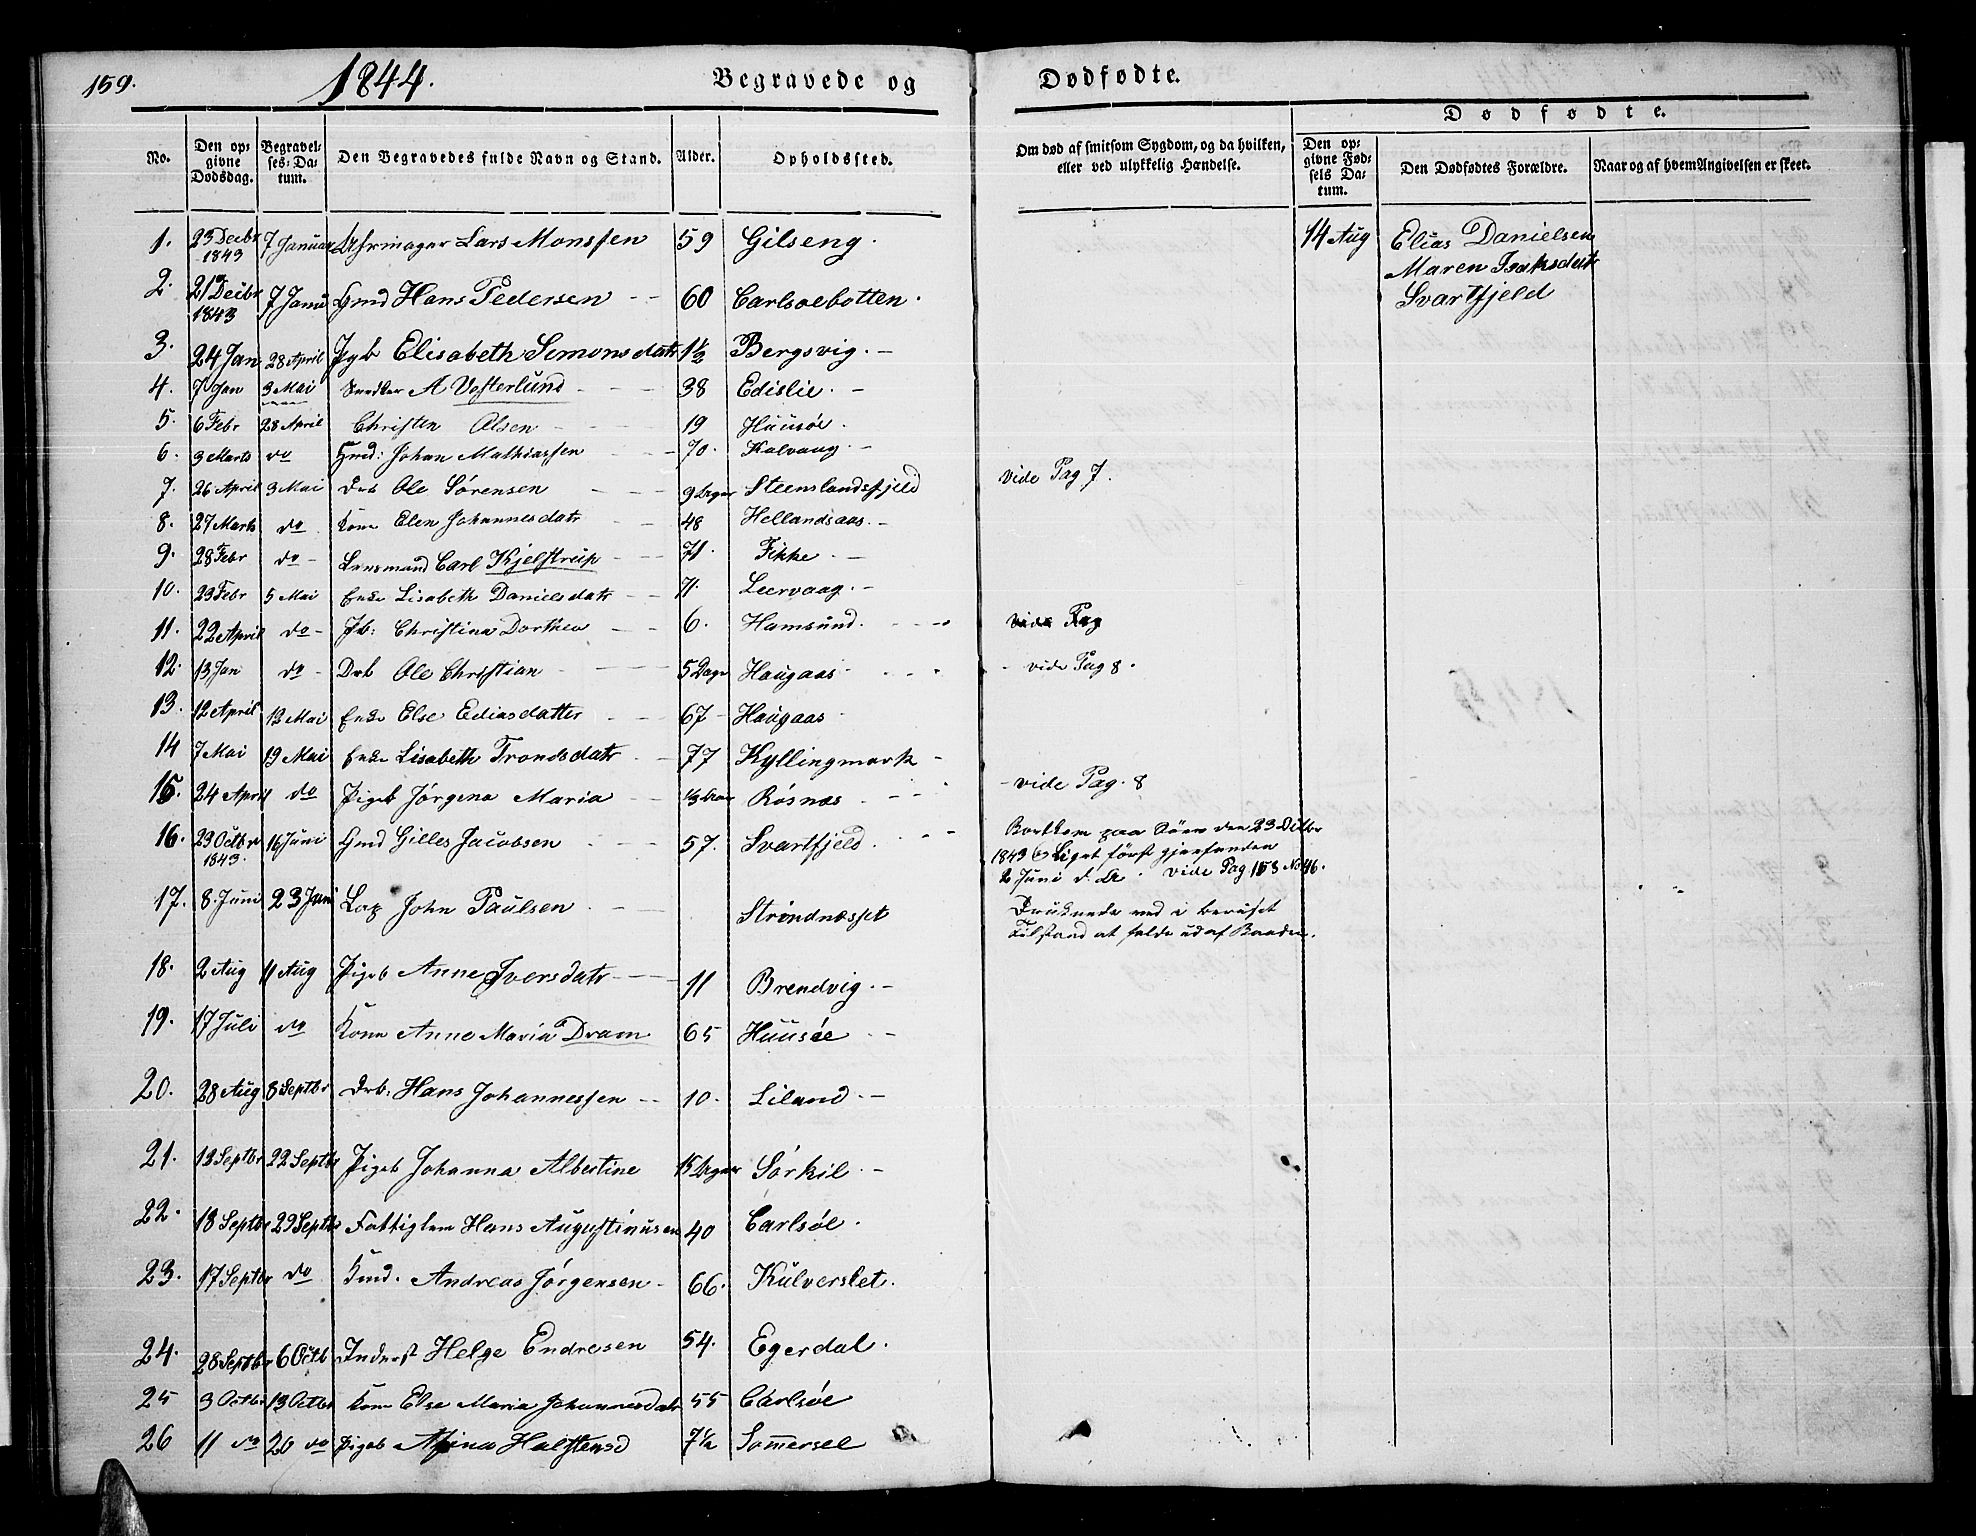 159. 1844. Begravede og Dødfødte.
Dødfødte.
No. Den opgivne Dødsdag. Begravelses-Datum. Den Begravedes fulde Navn og Stand. Alder. Opholdssted. Om død af smitsom Sygdom, og da hvilken, eller ved ulykkelig Hændelse. Den opgivne Fødsels Datum. Den Dødfødtes Forældre. Naar og af hvem Angivelsen er skeet.
1. 23 Decbr 1843 7 Januar Uhrmager Lars Monssen 59 Gilseng. 14 Aug Elias Danielsen
Maren Isaksdatr
Svartfjeld
2. 21 Decbr 1843 7 Janu Gmd Hans Pedersen 60 Carlsoebotten.
3. 24 Jan 28 April Pgb Elisabeth Simonsdatr 1½ Bergsvig.
4. 7 Jan 3 Mai A Vesterlund 38 Edislie.
5. 6 Febr 28 April Christen Olsen 19 Huusøe.
6. 3 Marts do Gmd: Johan Mathiassen 70. Kalvaag.
7. 26 April 3 Mai Drb Ole Sørensen 9 Dager Steenslandsfjeld vide Pag 7.
8. 27 Marts do Kone Elen Johannesdatr 48 Hellandsaas.
9. 28 Febr do Lensmand Carl Kjelstrup 71. Fikke.
10. 23 Febr 5 Mai Enke Lisabeth Danielsdatr 71. Leervaag.
11. 22 April do Pb: Christina Dorthea 6. Hamsund. vide Pag
12. 13 Jan do Drb Ole Christian 5 Dage Haugaas vide Pag 8.
13. 12 April 12 Mai Enke Else Ediasdatter 67 Haugaas
14 7 Mai 19 Mai Enke Lisabeth Trondsdatr 77 Kyllingmark
15. 24 April do Pigeb Jørgena Maria Røsnæs vide Pag. 8
16. 23 Octbr 1843. 16 Juni Gmd Gilles Jacobsen 57. Svartfjeld. Bortkom paa Søen den 23 Octbr
1843 og Liget først gjenfunden
2 Juni d. A. vide Pag 153 No 46.
17. 8. Juni 23 Juni Lap John Paulsen Strøndnæsset Druknede ved i beruset
Tilstand at falde ud af Baaden.
18. 2 Aug 11 Aug Pigeb Anne Iversdatr 11 Brendvig.
19. 17 Juli do Kone Anne Maria Dram 65 Huusøe
20. 28 Aug 8 Septbr Drb: Hans Johannessen 10. Liland.
21. 13 Septbr 22 Septbr Pigeb Johanna Albertine 15 Dager Sørkil.
22. 18 Septbr 29 Septbr Fattiglem Hans Augustinusen 40 Carlsøe.
23. 17 Septbr do Kmd. Andreas Jørgensen 66. Kulverslet.
24. 28 Septbr 6 Octb Inderst Helge Endresen 54. Egerdal.
25 3 Octbr 13 Octbr Kone Else Maria Johannesdatr 55 Carlsøe
26 11 do 20 do Pigeb Halstensd 7½ Sommersel